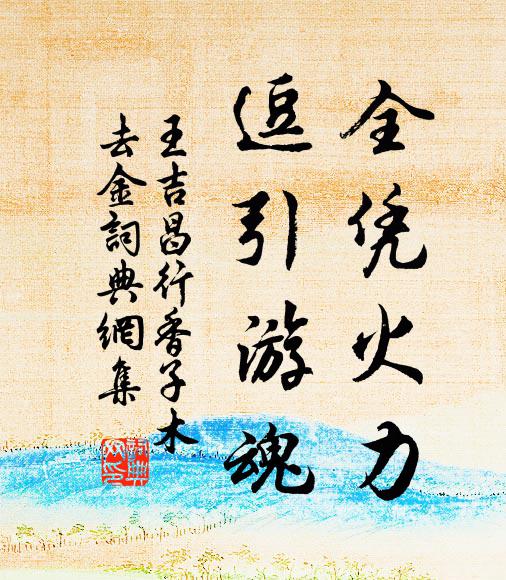 全凭火力
逗引游魂
王吉昌行香子木
去金詞典網集